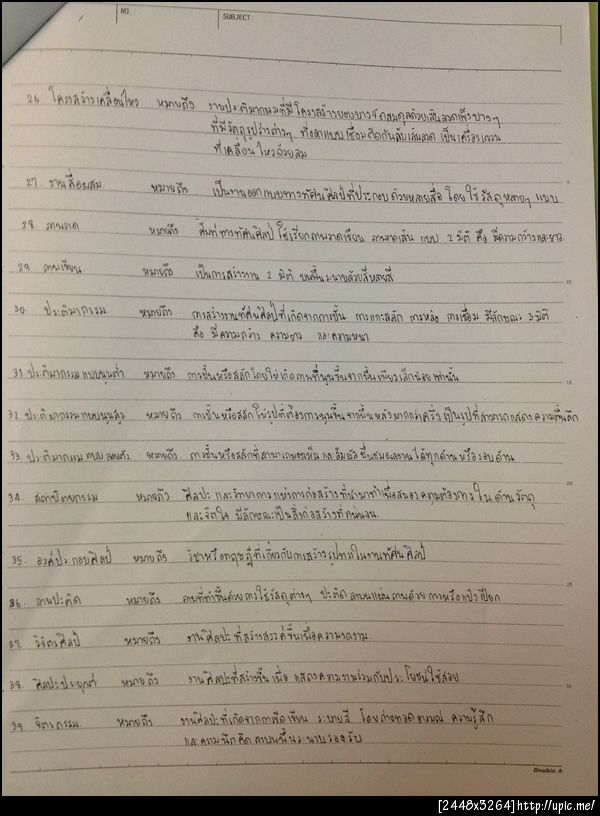 NO.
SUBJECT:
26 โครงสร้างเคลื่อนไหว หมายถึง งานประติมากรรมที่มีโครงสร้างบอบบางจัดสมดุลด้วยเส้นลวดแข็งบางๆ
ที่มีวัตถุรูปร่างต่างๆ ที่ออกแบบเชื่อมติดกันกับเส้นลวด เป็นเครื่องแขวน
ที่เคลื่อนไหวด้วยลม
27. งานสื่อผสม หมายถึง เป็นงานออกแบบทางทัศนศิลป์ที่ประกอบด้วยหลายสื่อ โดยใช้วัสดุหลายๆ แบบ
28. ภาพวาด หมายถึง ศัพท์ทางทัศนศิลป์ ใช้เรียกภาพวาดเขียน ภาพวาดเส้น แบบ 2 มิติ คือ มีความกว้างและยาว
29 ภาพเขียน หมายถึง เป็นการสร้างงาน 2 มิติ บนพื้นระนาบด้วยสีหลายสี
30 ประติมากรรม หมายถึง การสร้างงานทัศนศิลป์ที่เกิดจากการปั้น การแกะสลัก การหล่อ การเชื่อม มีลักษณะ 3 มิติ
คือ มีความกว้าง ความยาว และความหนา
31. ประติมากรรมแบบนูนต่ำ หมายถึง การปั้นหรือสลักโดยให้เกิดภาพที่นูนขึ้นจากพื้นเพียงเล็กน้อยเท่านั้น
32. ประติมากรรมแบบนูนสูง หมายถึง การปั้นหรือสลักให้รูปที่ต้องการนูนขึ้นจากพื้นหลังมากกว่าครึ่ง เป็นรูปที่สามารถแสดงความตื้นลึก
33. ประติมากรรมแบบลอยตัว หมายถึง การปั้นหรือสลักที่สามารถมองเห็นและสัมผัสชื่นชมผลงานได้ทุกด้านหรือรอบด้าน
34. สถาปัตยกรรม หมายถึง ศิลปะ และวิทยาการแห่งการก่อสร้างที่นำมาทำเพื่อสนองความต้องการในด้านวัตถุ
และจิตใจ มีลักษณะเป็นสิ่งก่อสร้างที่
35. องค์ประกอบศิลป์ หมายถึง วิชาหรือทฤษฎีที่เกี่ยวกับการสร้างรูปทรงในงานทัศนศิลป์
36. ภาพปะติด หมายถึง ภาพที่ทำขึ้นด้วยการใช้วัสดุต่างๆ ปะติดลงบนแผ่นภาพด้วยกาวหรือแป้งเปียก
37. วิจิตรศิลป์ หมายถึง งานศิลปะที่สร้างสรรค์ขึ้นเพื่อความงดงาม
38. ศิลปะประยุกต์ หมายถึง งานศิลปะที่สร้างขึ้นเพื่อแสดงความงามร่วมกับประโยชน์ใช้สอย
39. จิตรกรรม หมายถึง งานศิลปะที่เกิดจากการขีดเขียน ระบายสี โดยถ่ายทอดอารมณ์ ความรู้สึก
และความนึกคิดลงบนพื้นระนาบรองรับ
Double A
[2448x3264]http://upic.me/